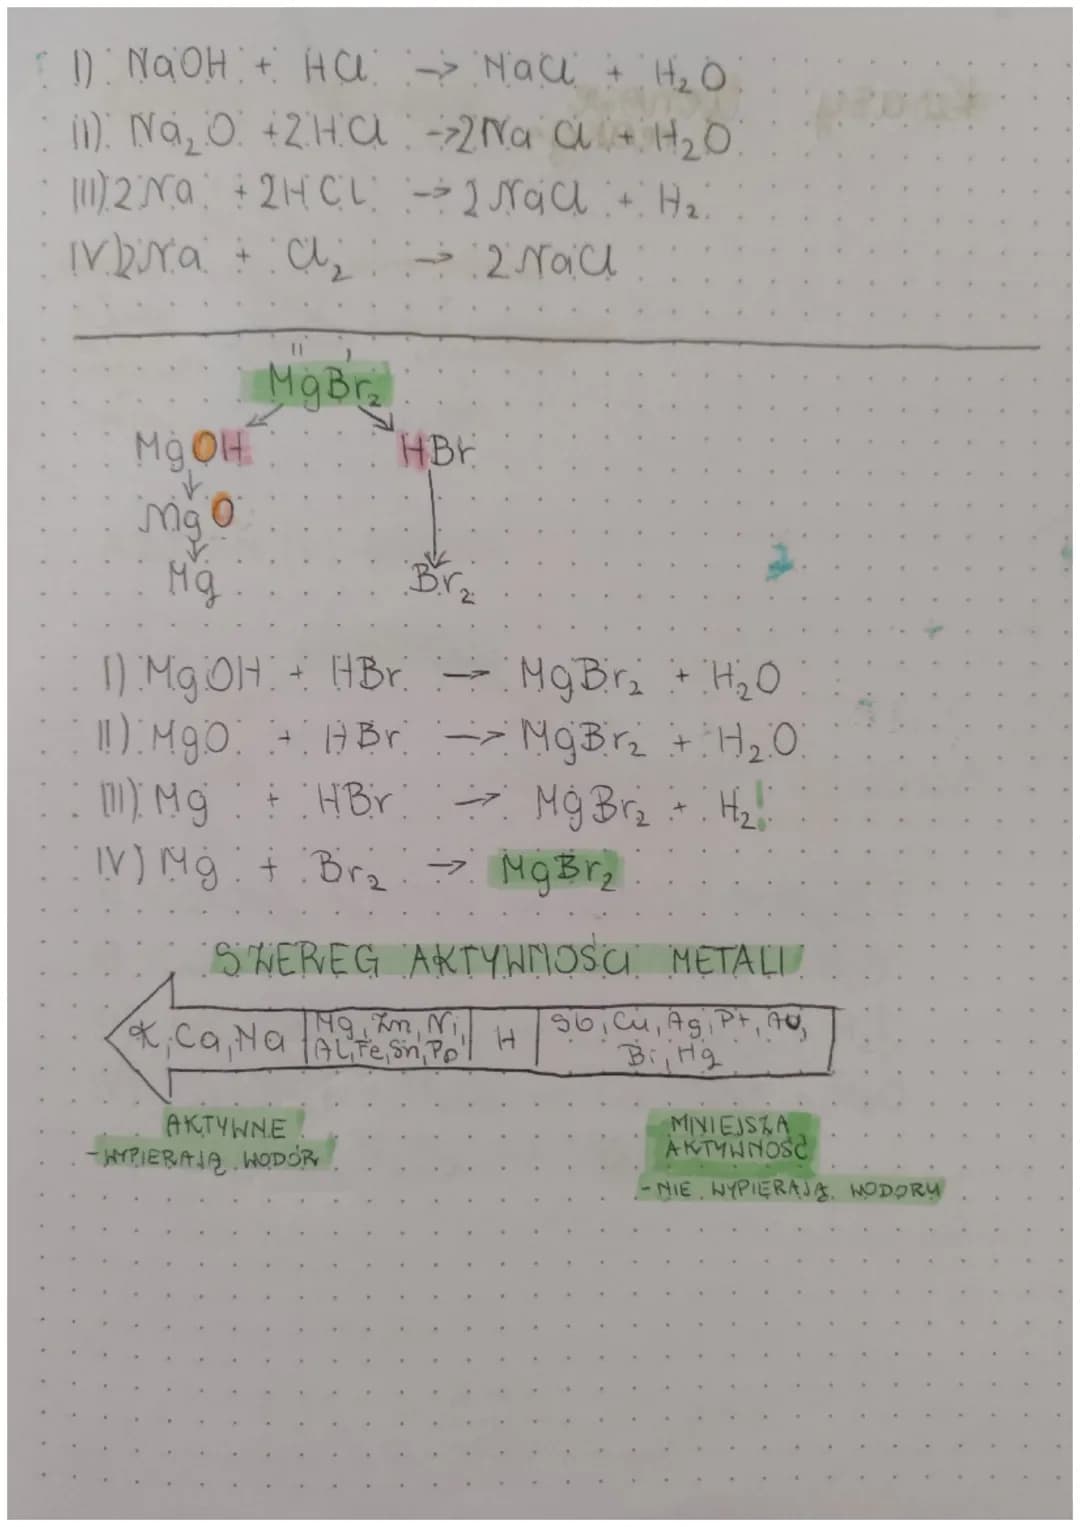 I) NaOH + HCl → NaCl + H₂O
II) Na₂O + 2HCl → 2NaCl + H₂O
III) 2Na + 2HCl → 2NaCl + H₂
IV) 2Na + Cl₂ → 2NaCl
II I
MgBr₂
MgOH HBr
MgO
Mg Br₂
I) MgOH + HBr → MgBr₂ + H₂O
II) MgO + HBr → MgBr₂ + H₂O
III) Mg + HBr → MgBr₂ + H₂!
IV) Mg + Br₂ → MgBr₂
SZEREG AKTYWNOŚCI METALI
K, Ca, Na Mg, Zn, Ni, H Sb, Cu, Ag, Pt, Au,
Al, Fe, Sn, Pb Bi, Hg
AKTYWNE
- WYPIERAJĄ WODÓR
MNIEJSZA
AKTYWNOŚĆ
- NIE WYPIERAJĄ WODORU